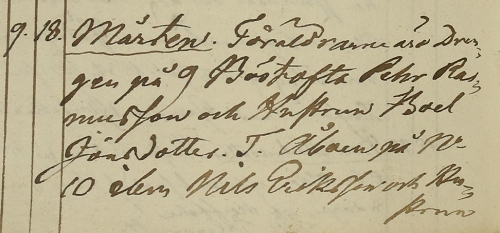 9. 18. Mårten. Föräldrarne äro Dren-
gen på 9 Böstofta Pehr Ras-
musson och Hustrun Boel
Jönsdotter. T. Åboen på No
10 ibm Nils Eriksson och Hu-
strun